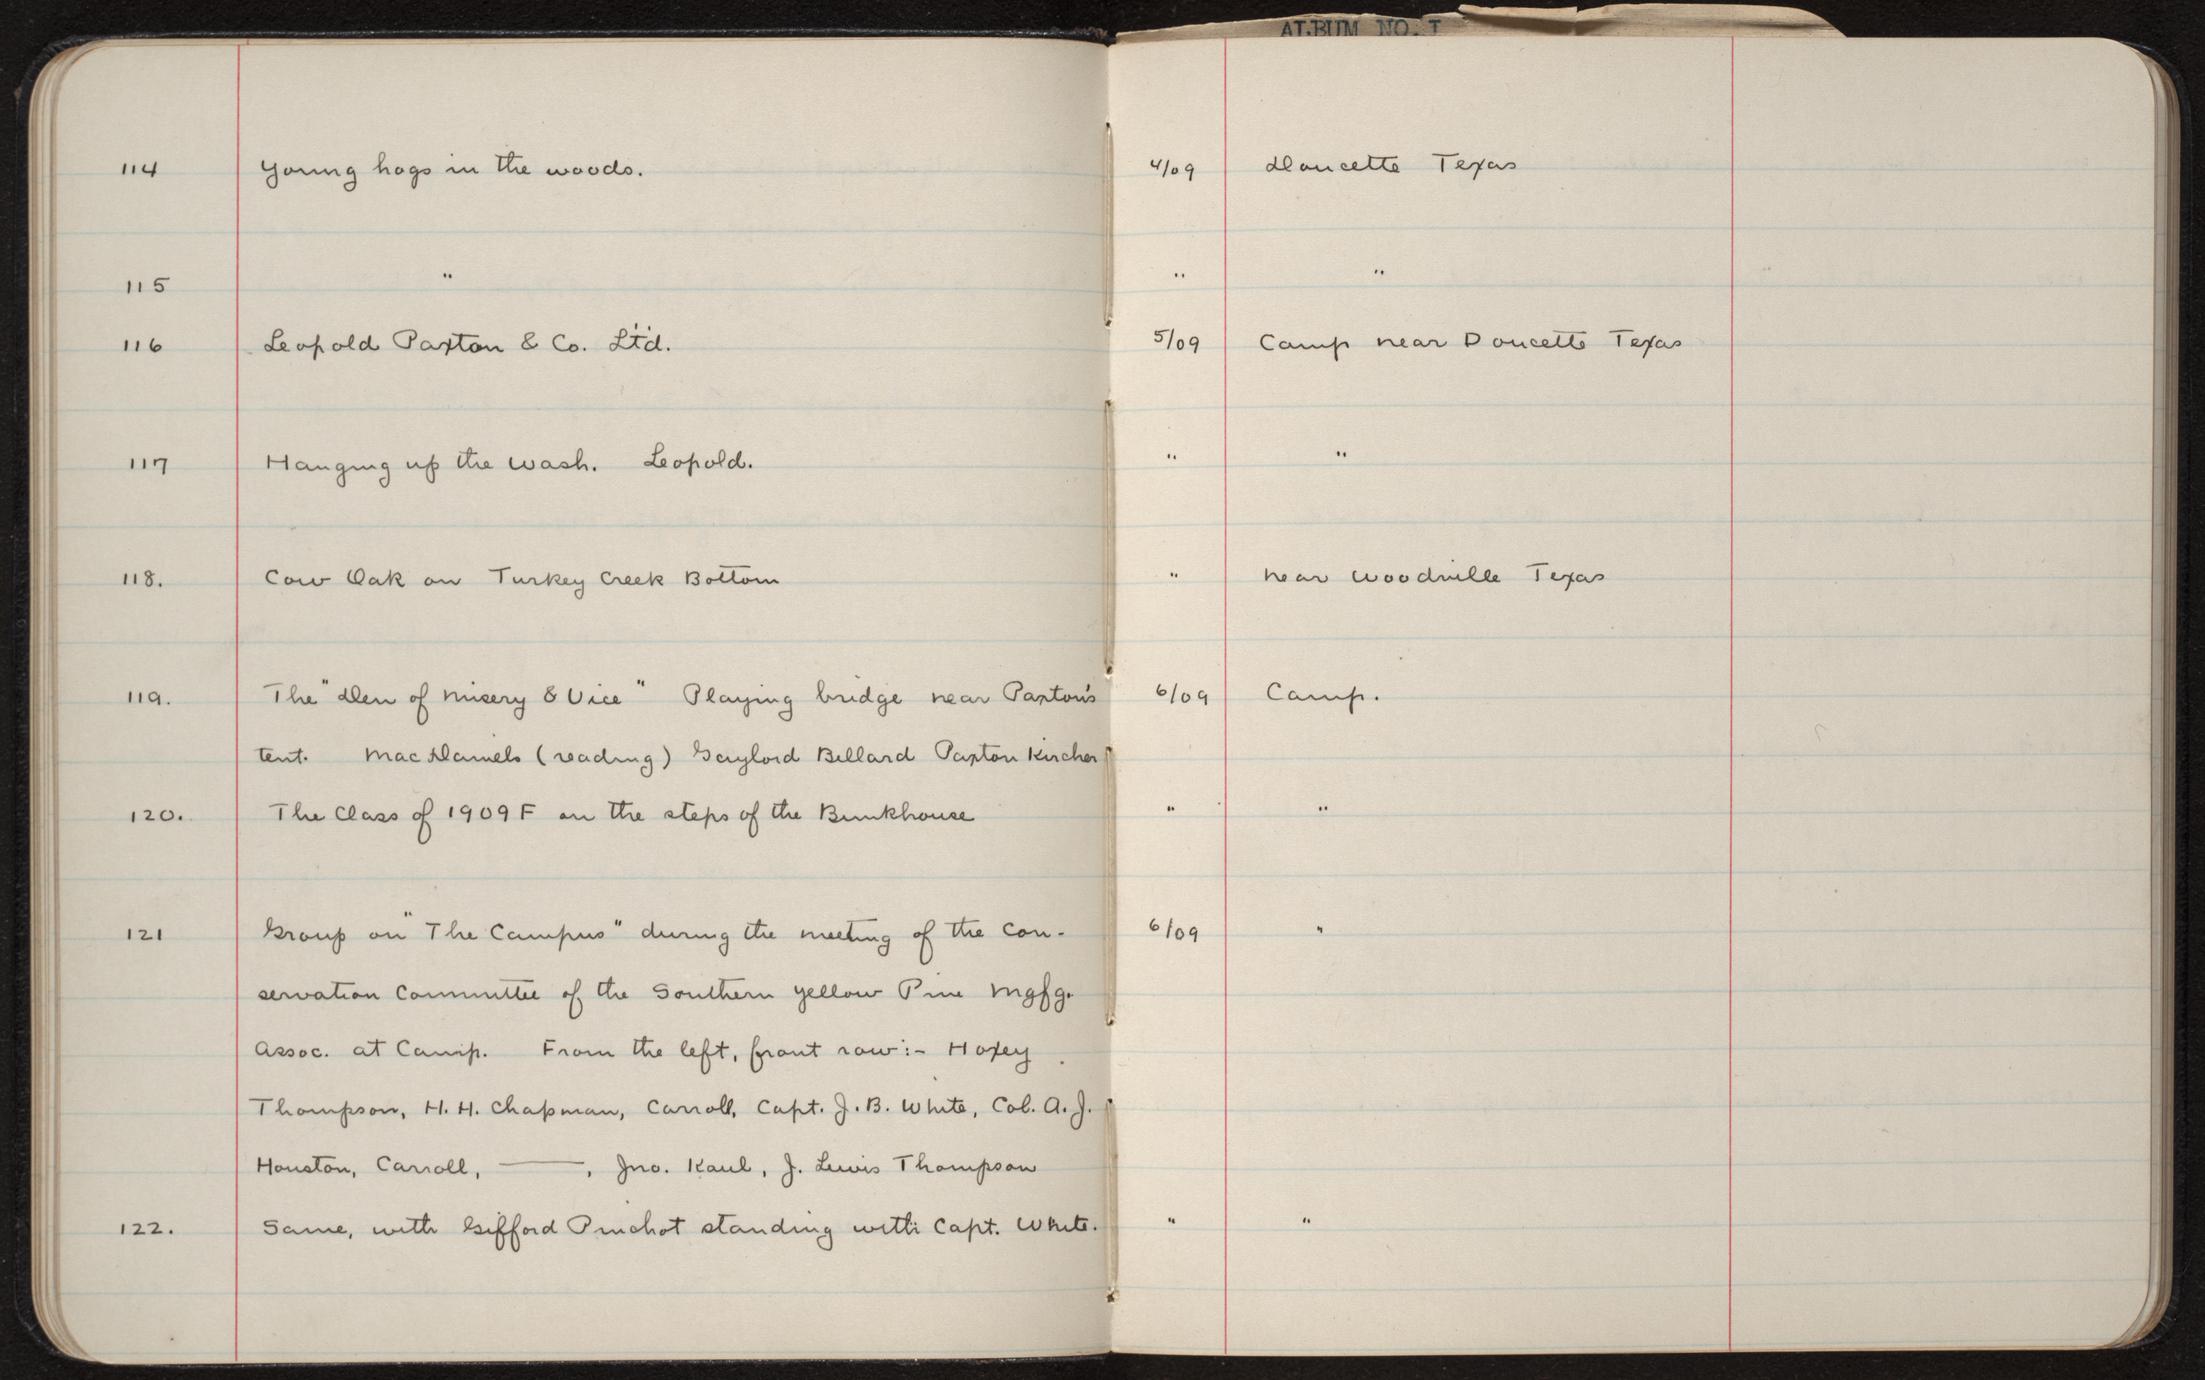 ALBUM NO. I
114 Young hogs in the woods. 4/09 Doucette Texas
115 " " "
116 Leopold Paxton & Co. Ltd. 5/09 Camp near Doucette Texas
117 Hanging up the wash. Leopold. " "
118. Cow Oak on Turkey Creek Bottom " near Woodville Texas
119. The "Den of Misery & Vice" Playing bridge near Paxton's 6/09 Camp.
tent. MacDaniels (reading) Gaylord Billard Paxton Kircher
120. The Class of 1909 F on the steps of the Bunkhouse " "
121 Group on "The Campus" during the meeting of the Con- 6/09 "
servation Committee of the Southern Yellow Pine Mgfg.
Assoc. at Camp. From the left, front row:- Hoxey
Thompson, H. H. Chapman, Carroll, Capt. J. B. White, Col. A. J.
Houston, Carroll, ———, Jno. Kaul, J. Lewis Thompson
122. Same, with Gifford Pinchot standing with Capt. White. " "